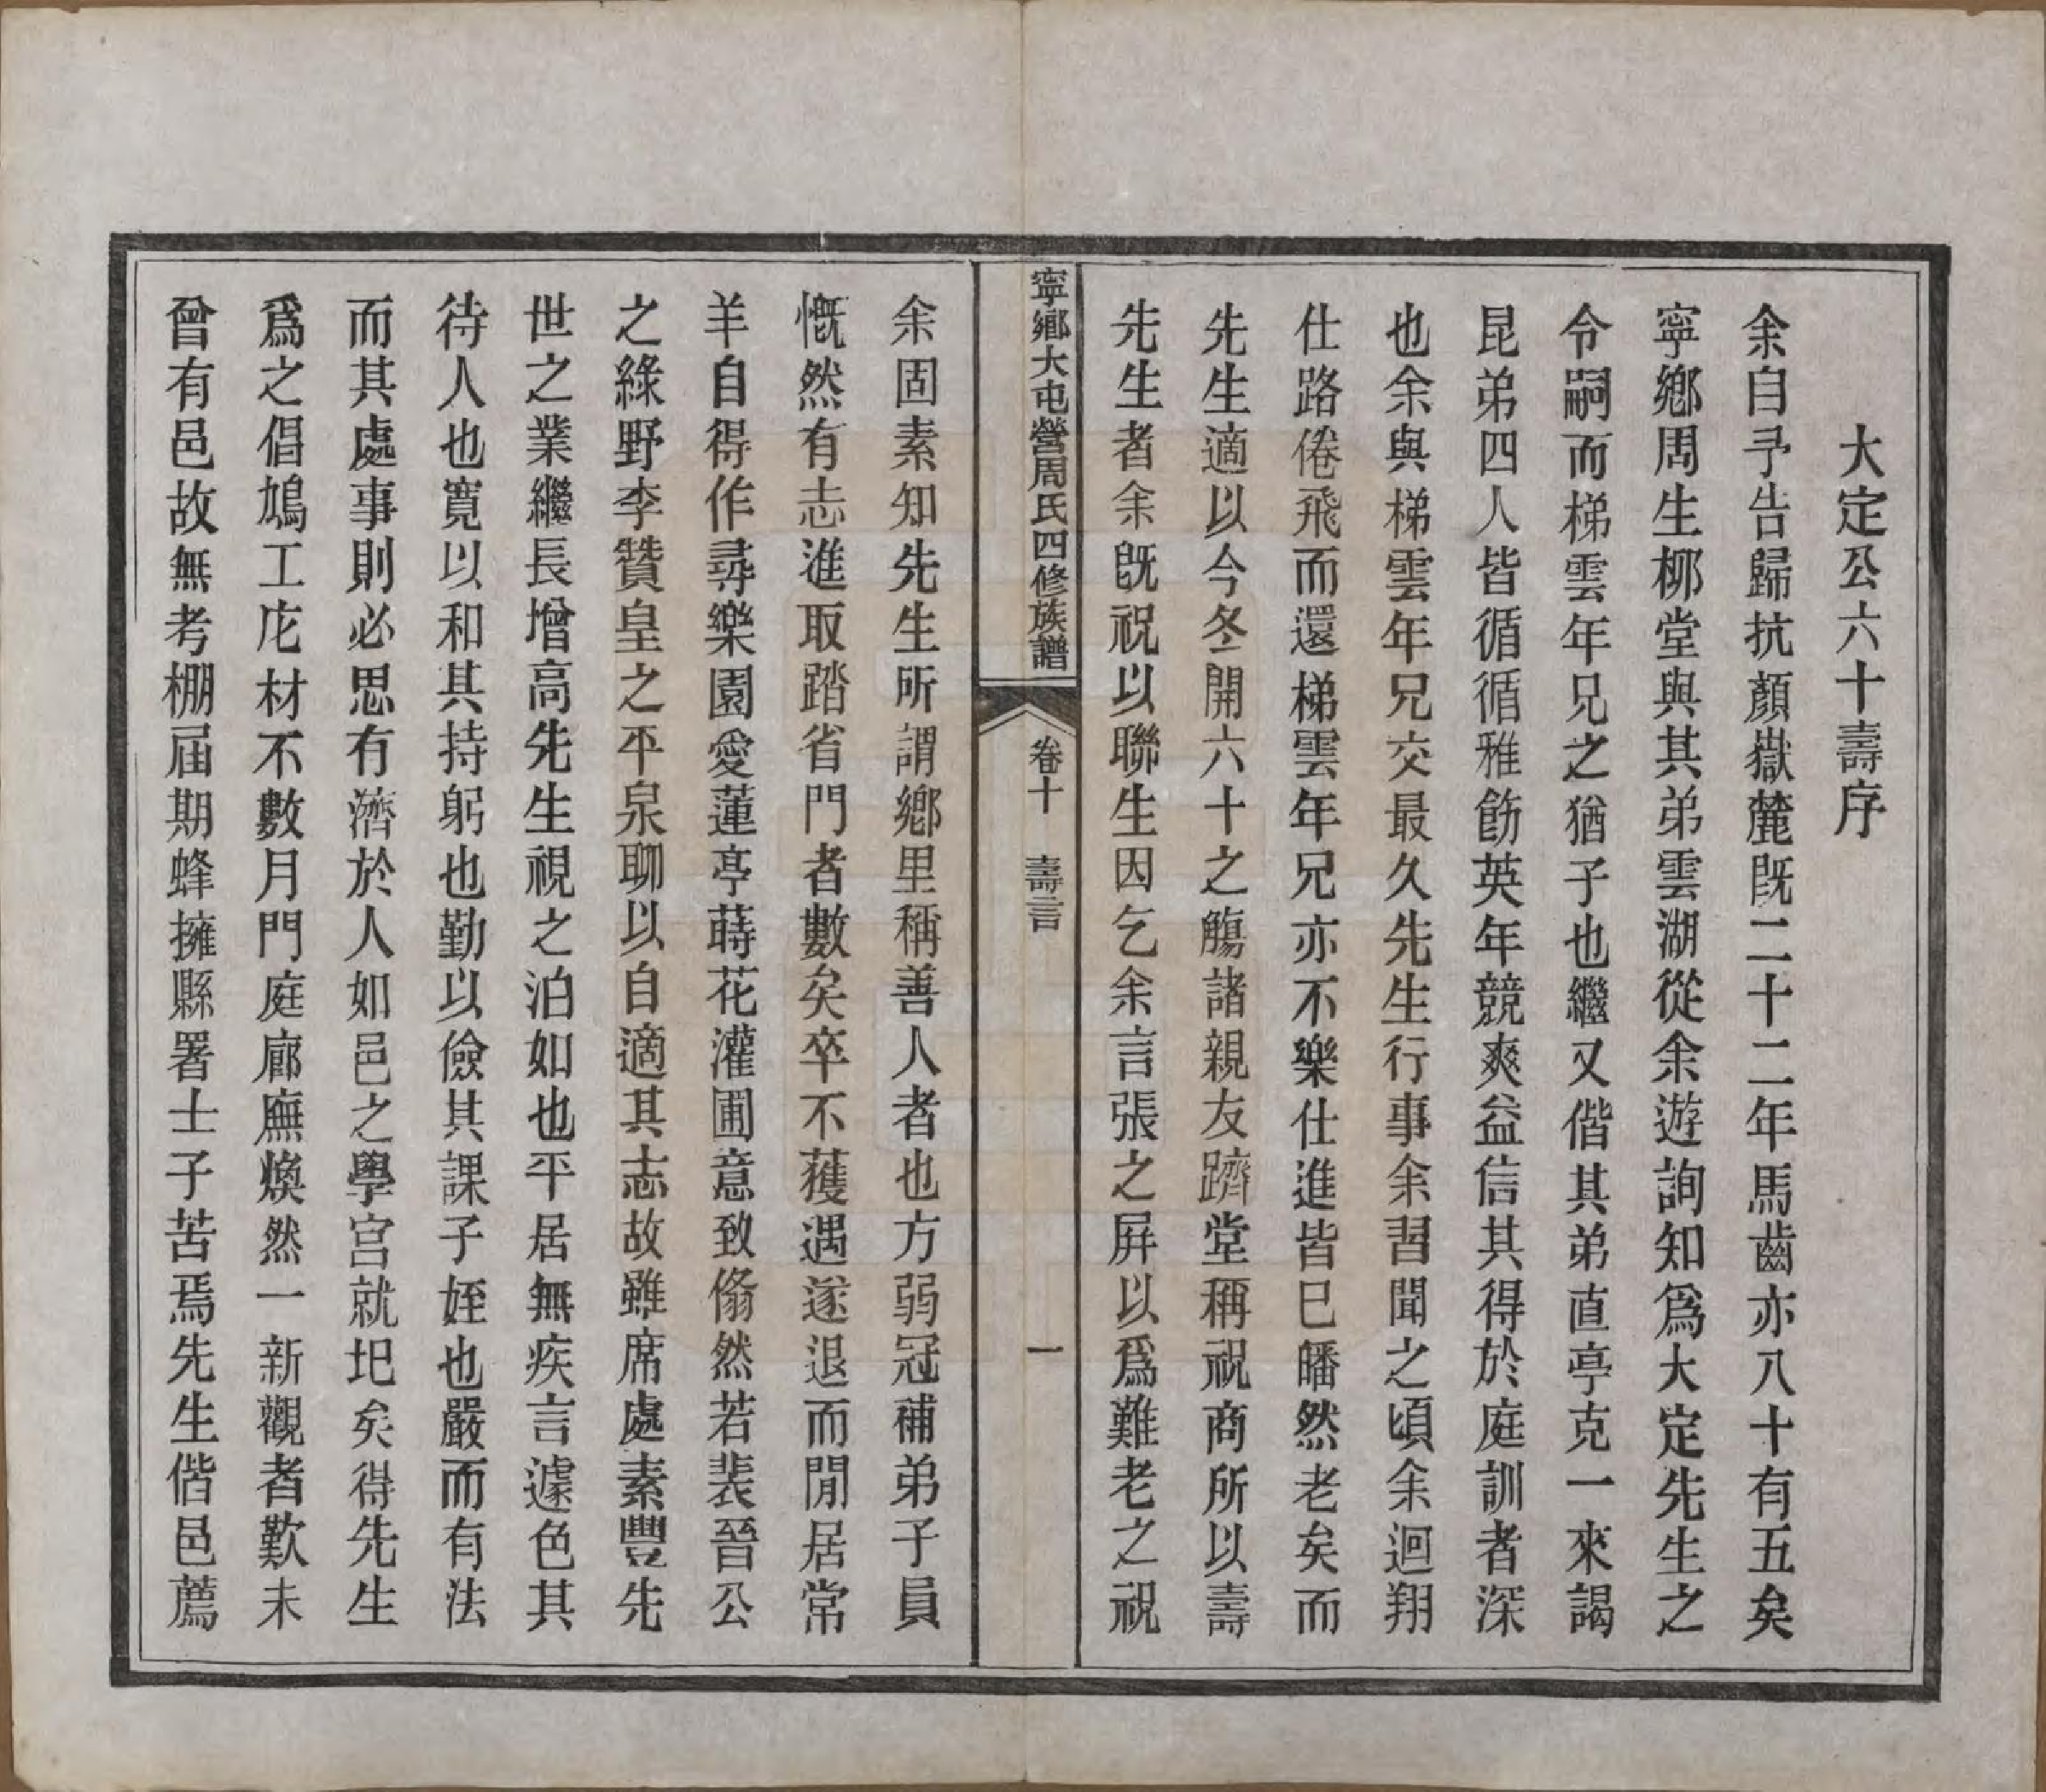 大定公六十壽序
余自予告歸抗顏嶽麓既二十二年馬齒亦八十有五矣
寧鄉周生柳堂與其弟雲湖從余遊詢知爲大定先生之
令嗣而梯雲年兄之猶子也繼又偕其弟直亭克一來謁
昆弟四人皆循循雅飭英年競爽益信其得於庭訓者深
也余與梯雲年兄交最久先生行事余習聞之頃余迴翔
仕路倦飛而還梯雲年兄亦不樂仕進皆巳皤然老矣而
先生適以今冬開六十之觴諸親友躋堂稱祝商所以壽
先生者余既祝以聯生因乞余言張之屏以爲難老之祝
寧鄉大屯營周氏四修族譜
卷十
壽言
一
余固素知先生所謂鄉里稱善人者也方弱冠補弟子員
慨然有志進取踏省門者數矣卒不獲遇遂退而閒居常
羊自得作尋樂園愛蓮亭蒔花灌圃意致翛然若裴晉公
之綠野李贊皇之平泉聊以自適其志故雖席處素豐先
世之業繼長增高先生視之泊如也平居無疾言遽色其
待人也寬以和其持躬也勤以儉其課子姪也嚴而有法
而其處事則必思有濟於人如邑之學宮就圯矣得先生
爲之倡鳩工庀材不數月門庭廊廡煥然一新觀者歎未
曾有邑故無考棚屆期蜂擁縣署士子苦焉先生偕邑薦